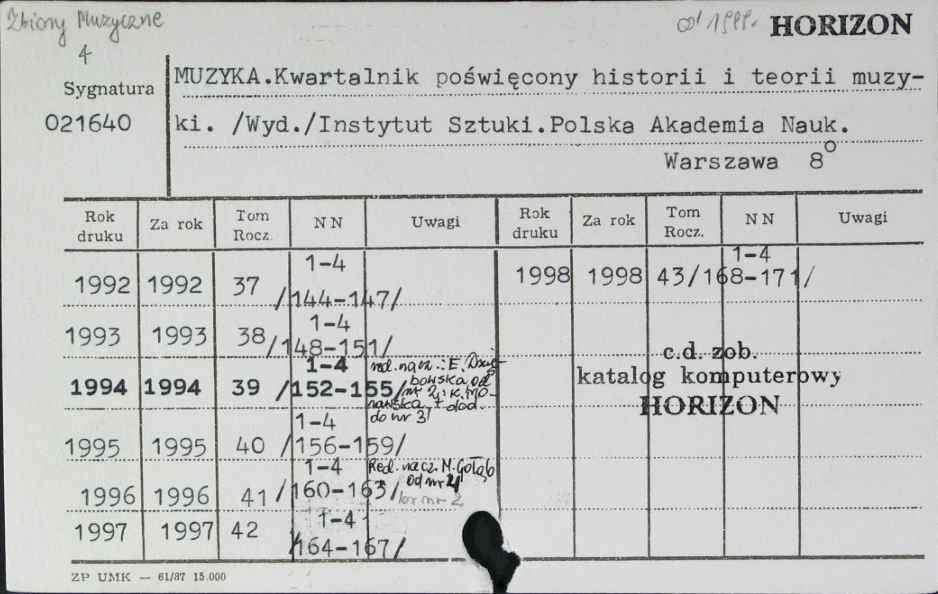 Zbiory Muzyczne
4
od 1999. HORIZON
Sygnatura
021640
MUZYKA.Kwartalnik poświęcony historii i teorii muzy-
ki. /Wyd./Instytut Sztuki.Polska Akademia Nauk.
Warszawa 8°
Rok druku Za rok Tom Rocz. NN Uwagi Rok druku Za rok Tom Rocz. NN Uwagi
1992 1992 37 1-4 /144-147/
1998 1998 43/168-171/ 1-4
1993 1993 38 1-4 /148-151/
1994 1994 39 1-4 /152-155/
red. nacz.: E. Dzię-
bowska od
nr 2, i K. Mo-
rawska + dod.
do nr 3!
1995 1995 40 1-4 /156-159/
1996 1996 41 1-4 /160-163/
Red. nacz. M. Gołąb
od nr 4
br nr 2
1997 1997 42 1-4 /164-167/
c.d. zob.
katalog komputerowy
HORIZON
ZP UMK — 61/87 15.000